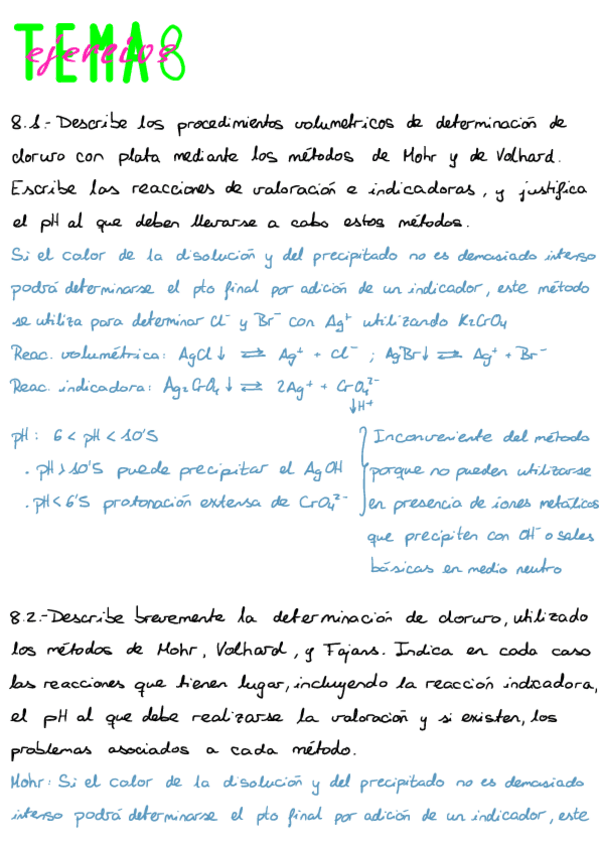 TEMA 8
ejercios
8.1.- Describe los procedimientos volumetricos de determinación de
cloruro con plata mediante los métodos de Mohr y de Volhard.
Escribe las reacciones de valoración e indicadoras, y justifica
el pH al que deben llevarse a cabo estos métodos.
Si el color de la disolución y del precipitado no es demasiado intenso
podrá determinarse el pto final por adición de un indicador, este método
se utiliza para determinar Cl⁻ y Br⁻ con Ag⁺ utilizando K₂CrO₄
Reac. volumétrica: AgCl↓ ⇌ Ag⁺ + Cl⁻ ; AgBr↓ ⇌ Ag⁺ + Br⁻
Reac. indicadora: Ag₂CrO₄↓ ⇌ 2Ag⁺ + CrO₄²⁻
↓H⁺
pH: 6 < pH < 10'5
. pH > 10'5 puede precipitar el AgOH
. pH < 6'5 protonación extensa de CrO₄²⁻
Inconveniente del método
porque no pueden utilizarse
en presencia de iones metálicos
que precipiten con OH⁻ o sales
básicas en medio neutro
8.2.- Describe brevemente la determinación de cloruro, utilizado
los métodos de Mohr, Volhard, y Fajans. Indica en cada caso
las reacciones que tienen lugar, incluyendo la reacción indicadora,
el pH al que debe realizarse la valoración y si existen, los
problemas asociados a cada método.
Mohr: Si el color de la disolución y del precipitado no es demasiado
intenso podrá determinarse el pto final por adición de un indicador, este